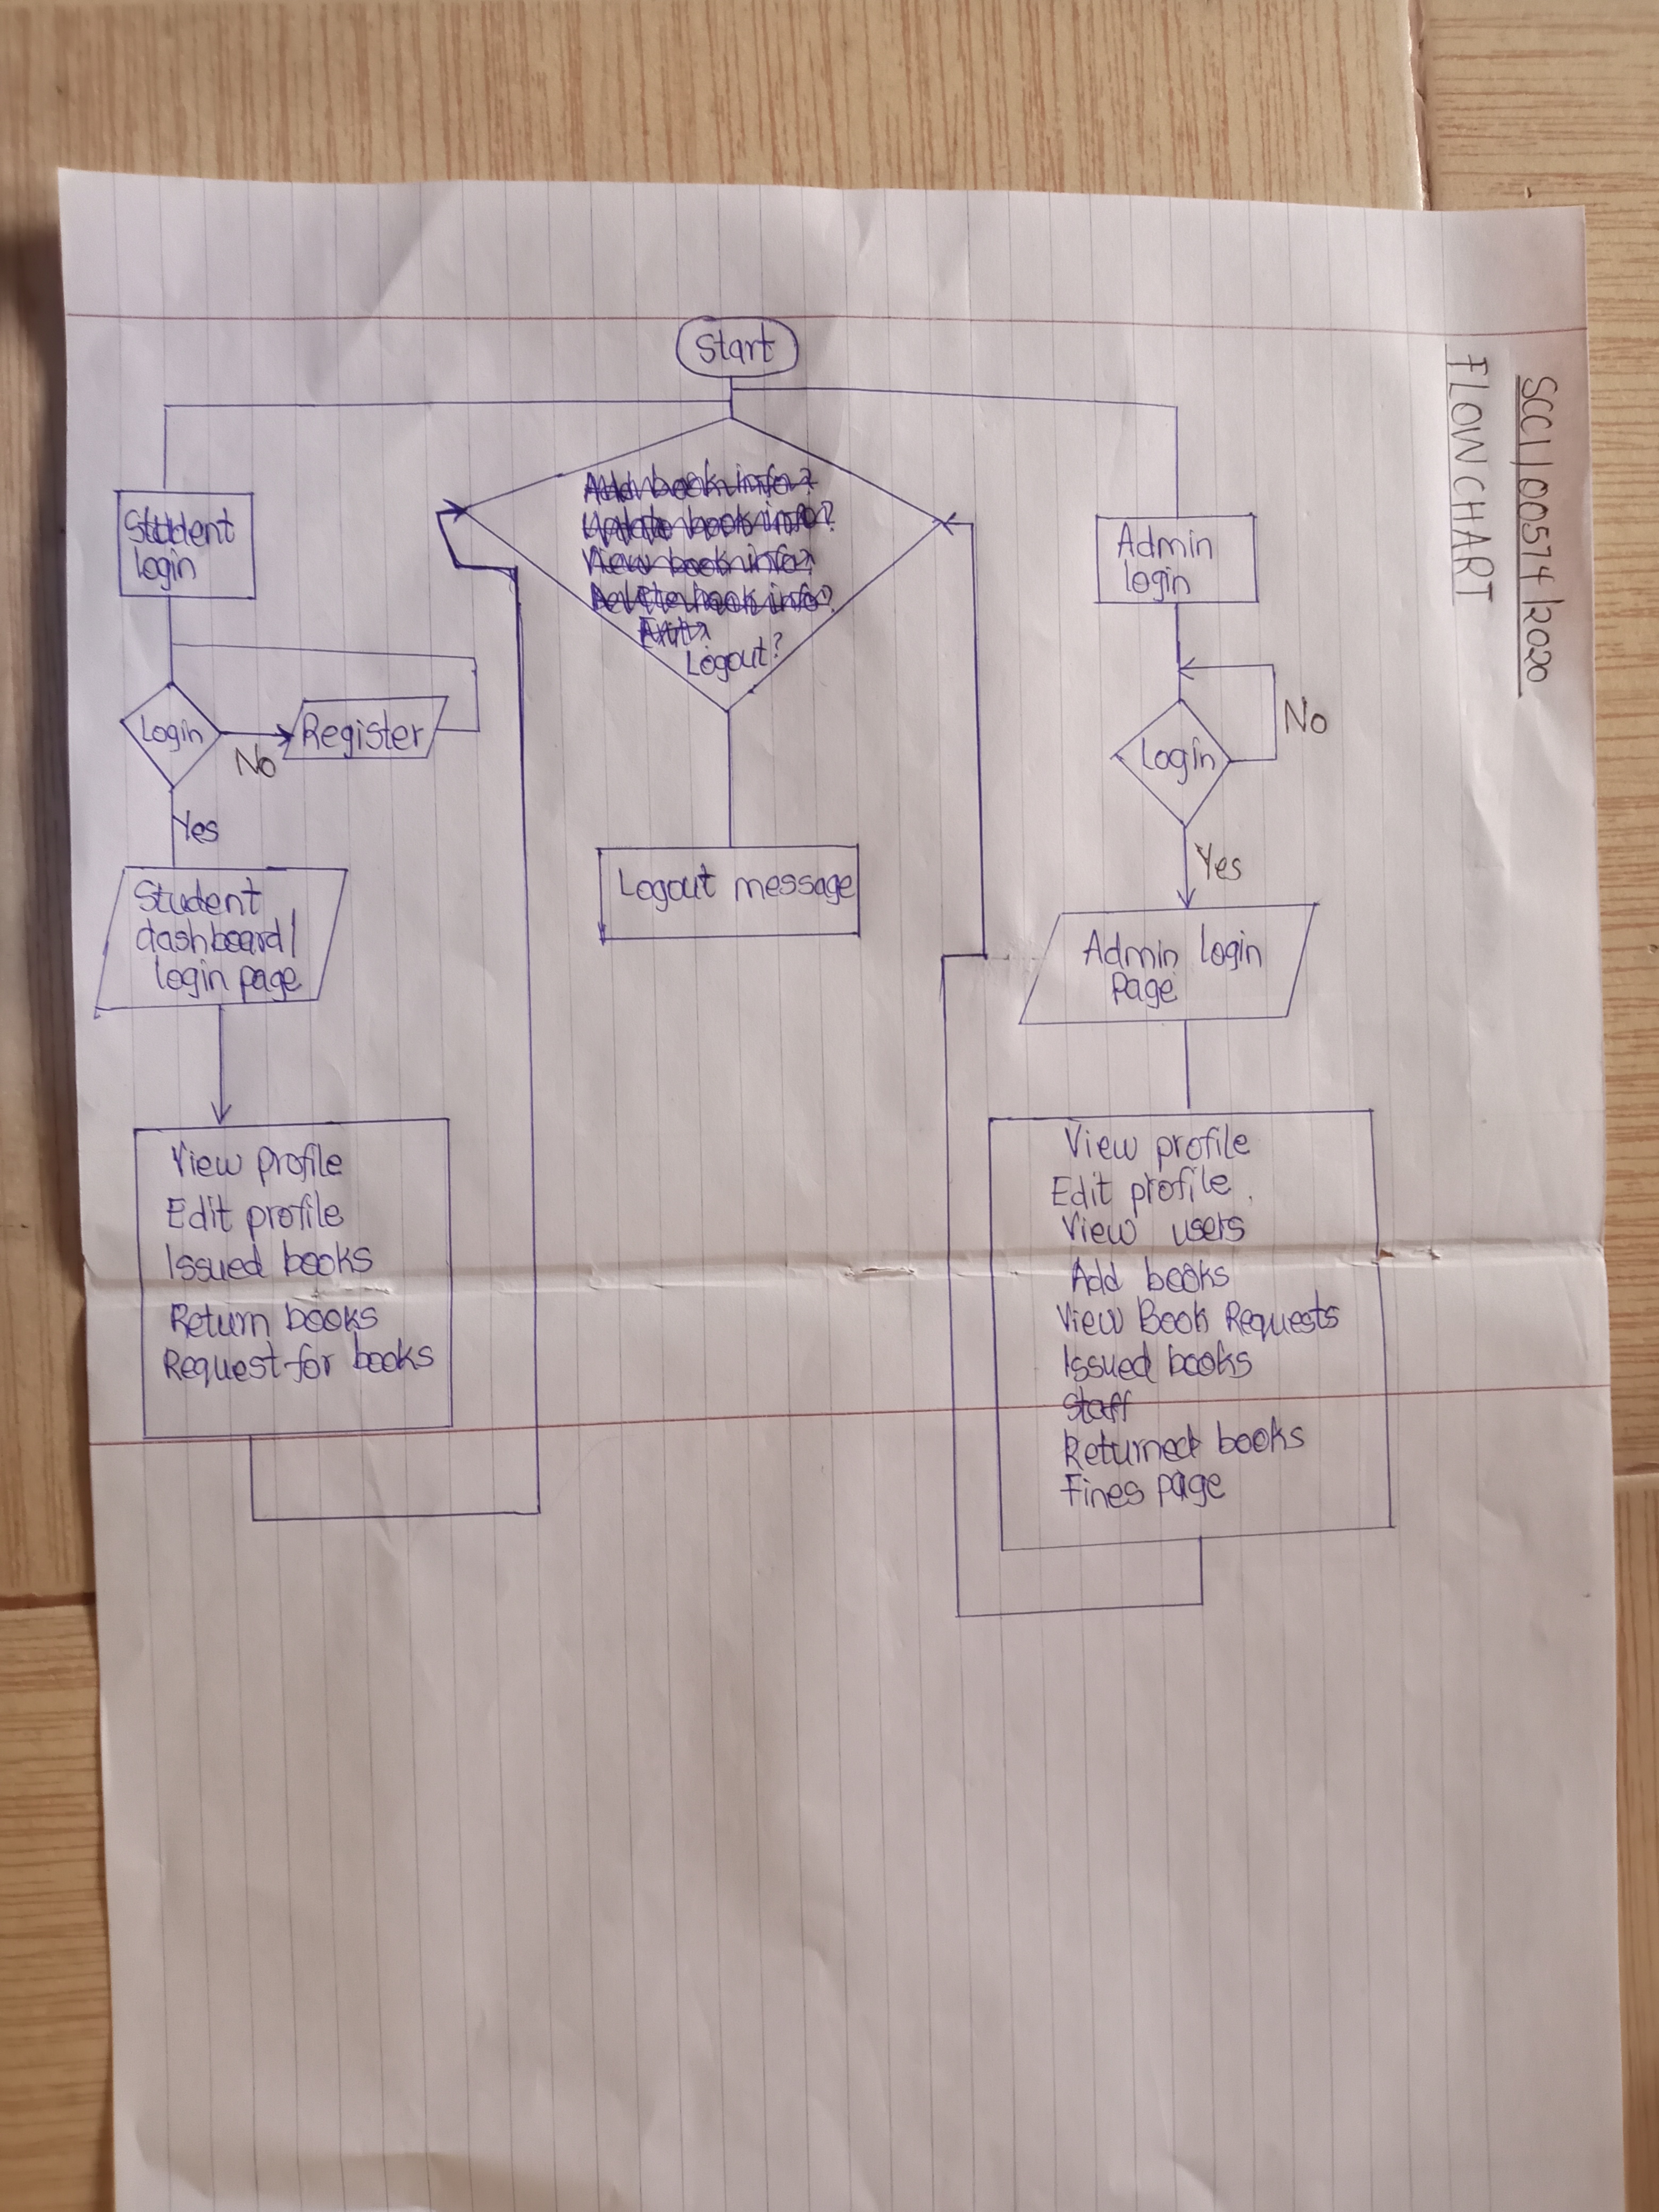 SCCI/00574/2020
FLOWCHART
Start
Student
login
Login
No
Register
Yes
Student
dashboard/
login page
View profile
Edit profile
Issued books
Return books
Request for books
Add book info?
Update book info?
View book info?
Delete book info?
Exit?
Logout?
Logout message
Admin
login
Login
No
Yes
Admin login
Page
View profile
Edit profile
View users
Add books
View Book Requests
Issued books
Staff
Returned books
Fines page